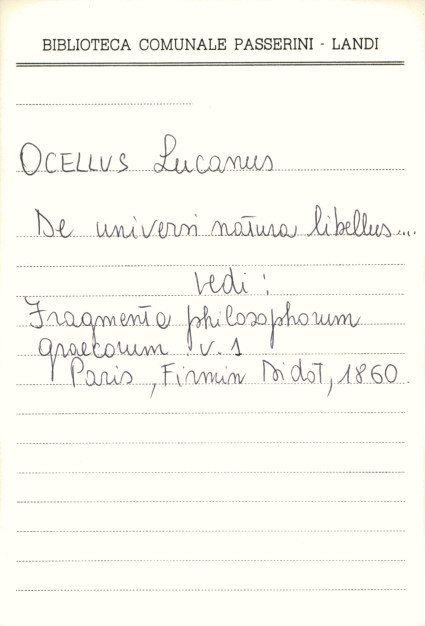 BIBLIOTECA COMUNALE PASSERINI - LANDI
OCELLUS Lucanus
De universi natura libellus...
vedi:
Fragmenta philosophorum
graecorum v. 1
Paris, Firmin Didot, 1860.